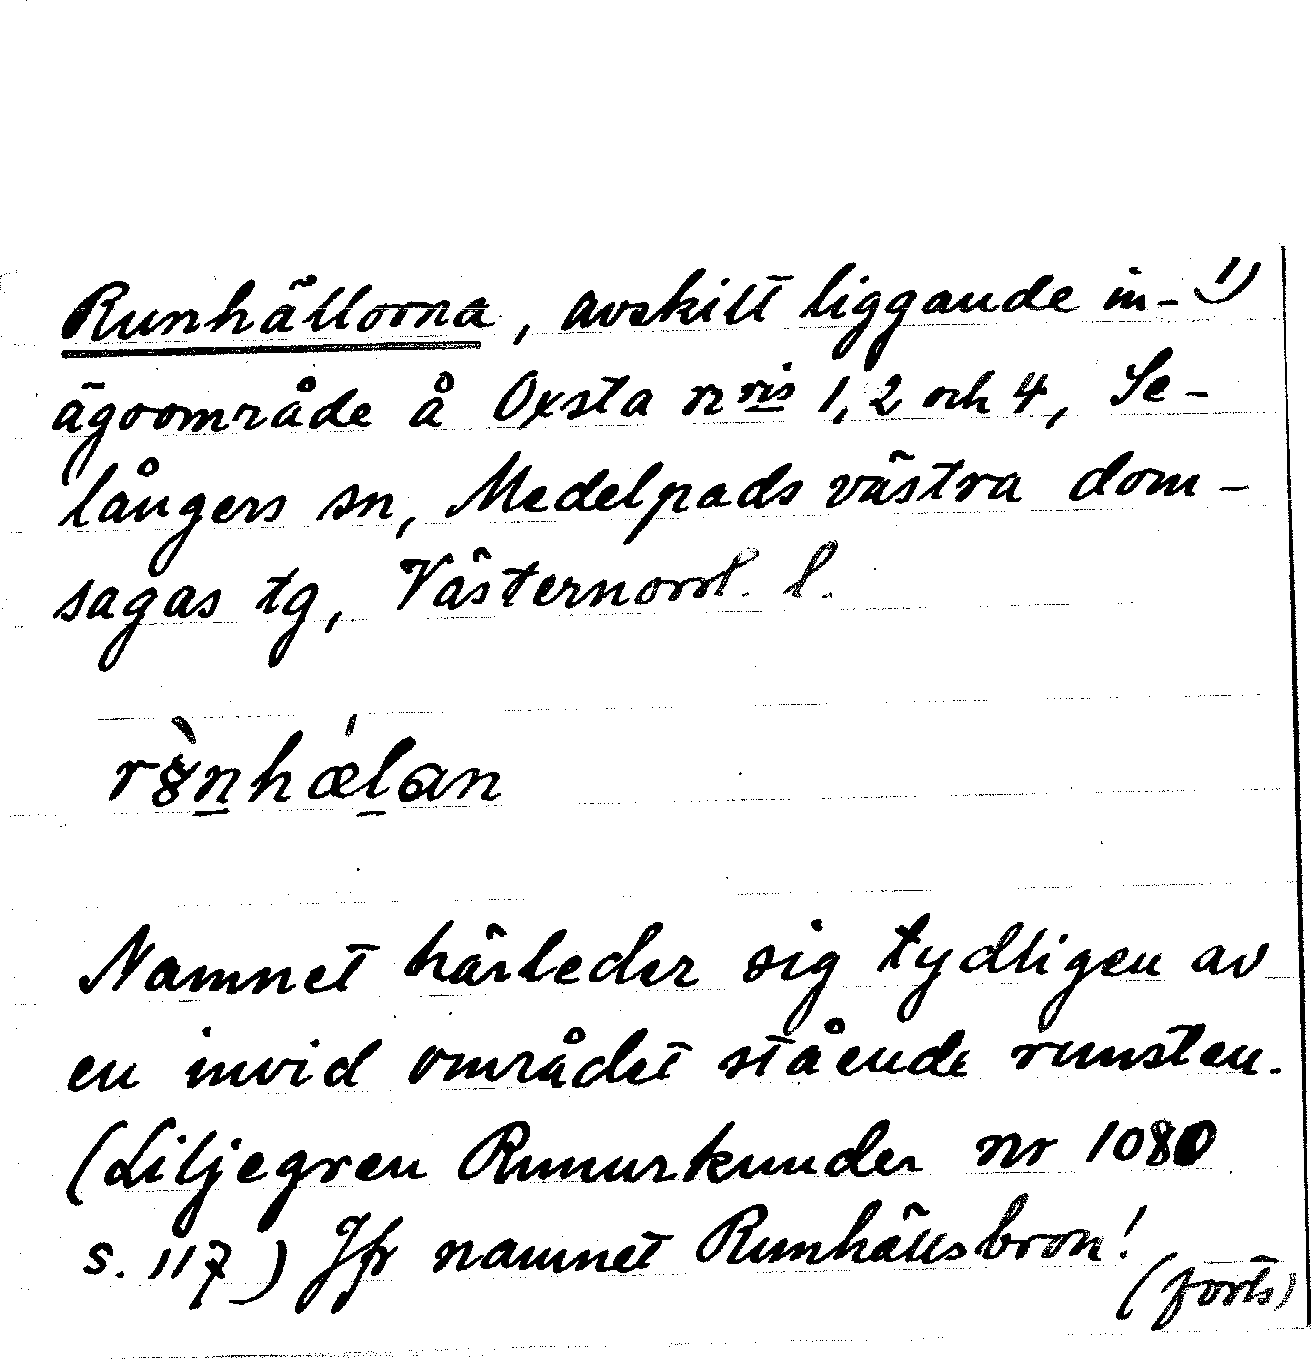 Runhällorna, avskilt liggande in- 1)
ägoområde å Oxsta nris 1, 2 och 4, Se-
långers sn, Medelpads västra dom-
sagas tg, Västernorrl. l.
Namnet härleder sig tydligen av
en invid området stående runsten.
(Liljegren Runurkunder nr 1080
s. 117) Jfr namnet Runhällsbron!
(forts)